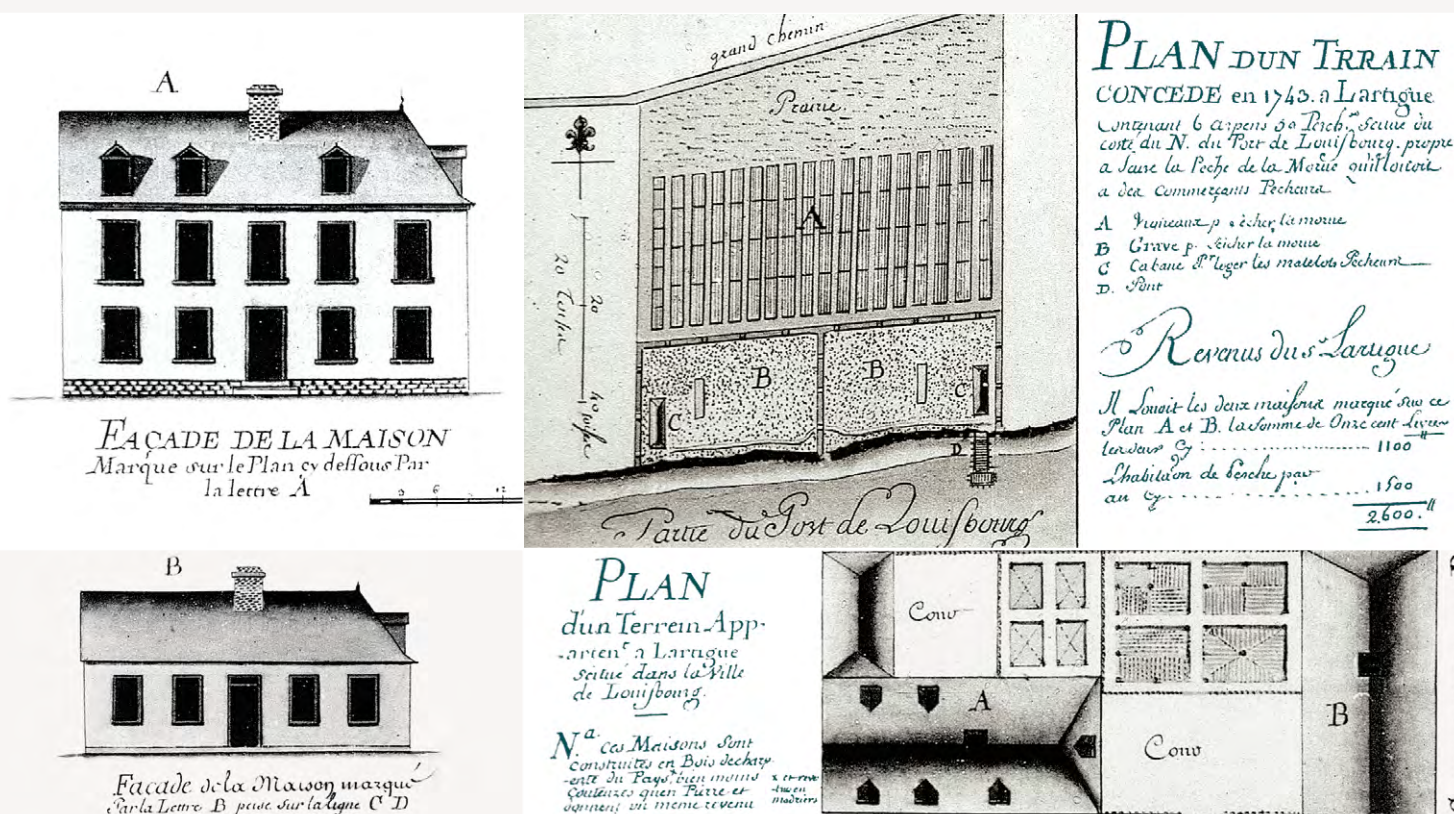 A
FAÇADE DE LA MAISON
Marque sur le Plan cy dessous Par
la lettre A
0 6 12
grand chemin
Prairie
A
20 Toises
20
40 toises
B
B
C
C
D
Partie du Port de Louisbourg
PLAN DUN TRRAIN
CONCEDE en 1743. a Lartigue
Contenant 6 arpens 50 Perch. scitué du
costé du N. du Port de Louisbourg. propre
a faire la Peche de la Morue quil louoit
a des Commerçants Pecheurs
A p. sécher la morue
B Grave p. sécher la morue
C Cabane Pr. loger les matelots Pecheurs
D. Pont
Revenus du sr. Lartigue
Il Louoit les deux maisons marqué sur ce
Plan A et B. la somme de Onze cent Livres
les deux Cy 1100
Lhabitaõn de Pesche par
an Cy 1500
2,600.
B
Facade de la Maison marqué
Par la Lettre B prise sur la ligne C D
PLAN
d'un Terrein App-
-artent a Lartigue
scitué dans la Ville
de Louisbourg.
Na. Ces Maisons Sont
construites en Bois decharp-
-ente du Pays, bien moins
Couteuzes quen Pierre et
donnent un meme revenu
madriers
Cour
A
Cour
B